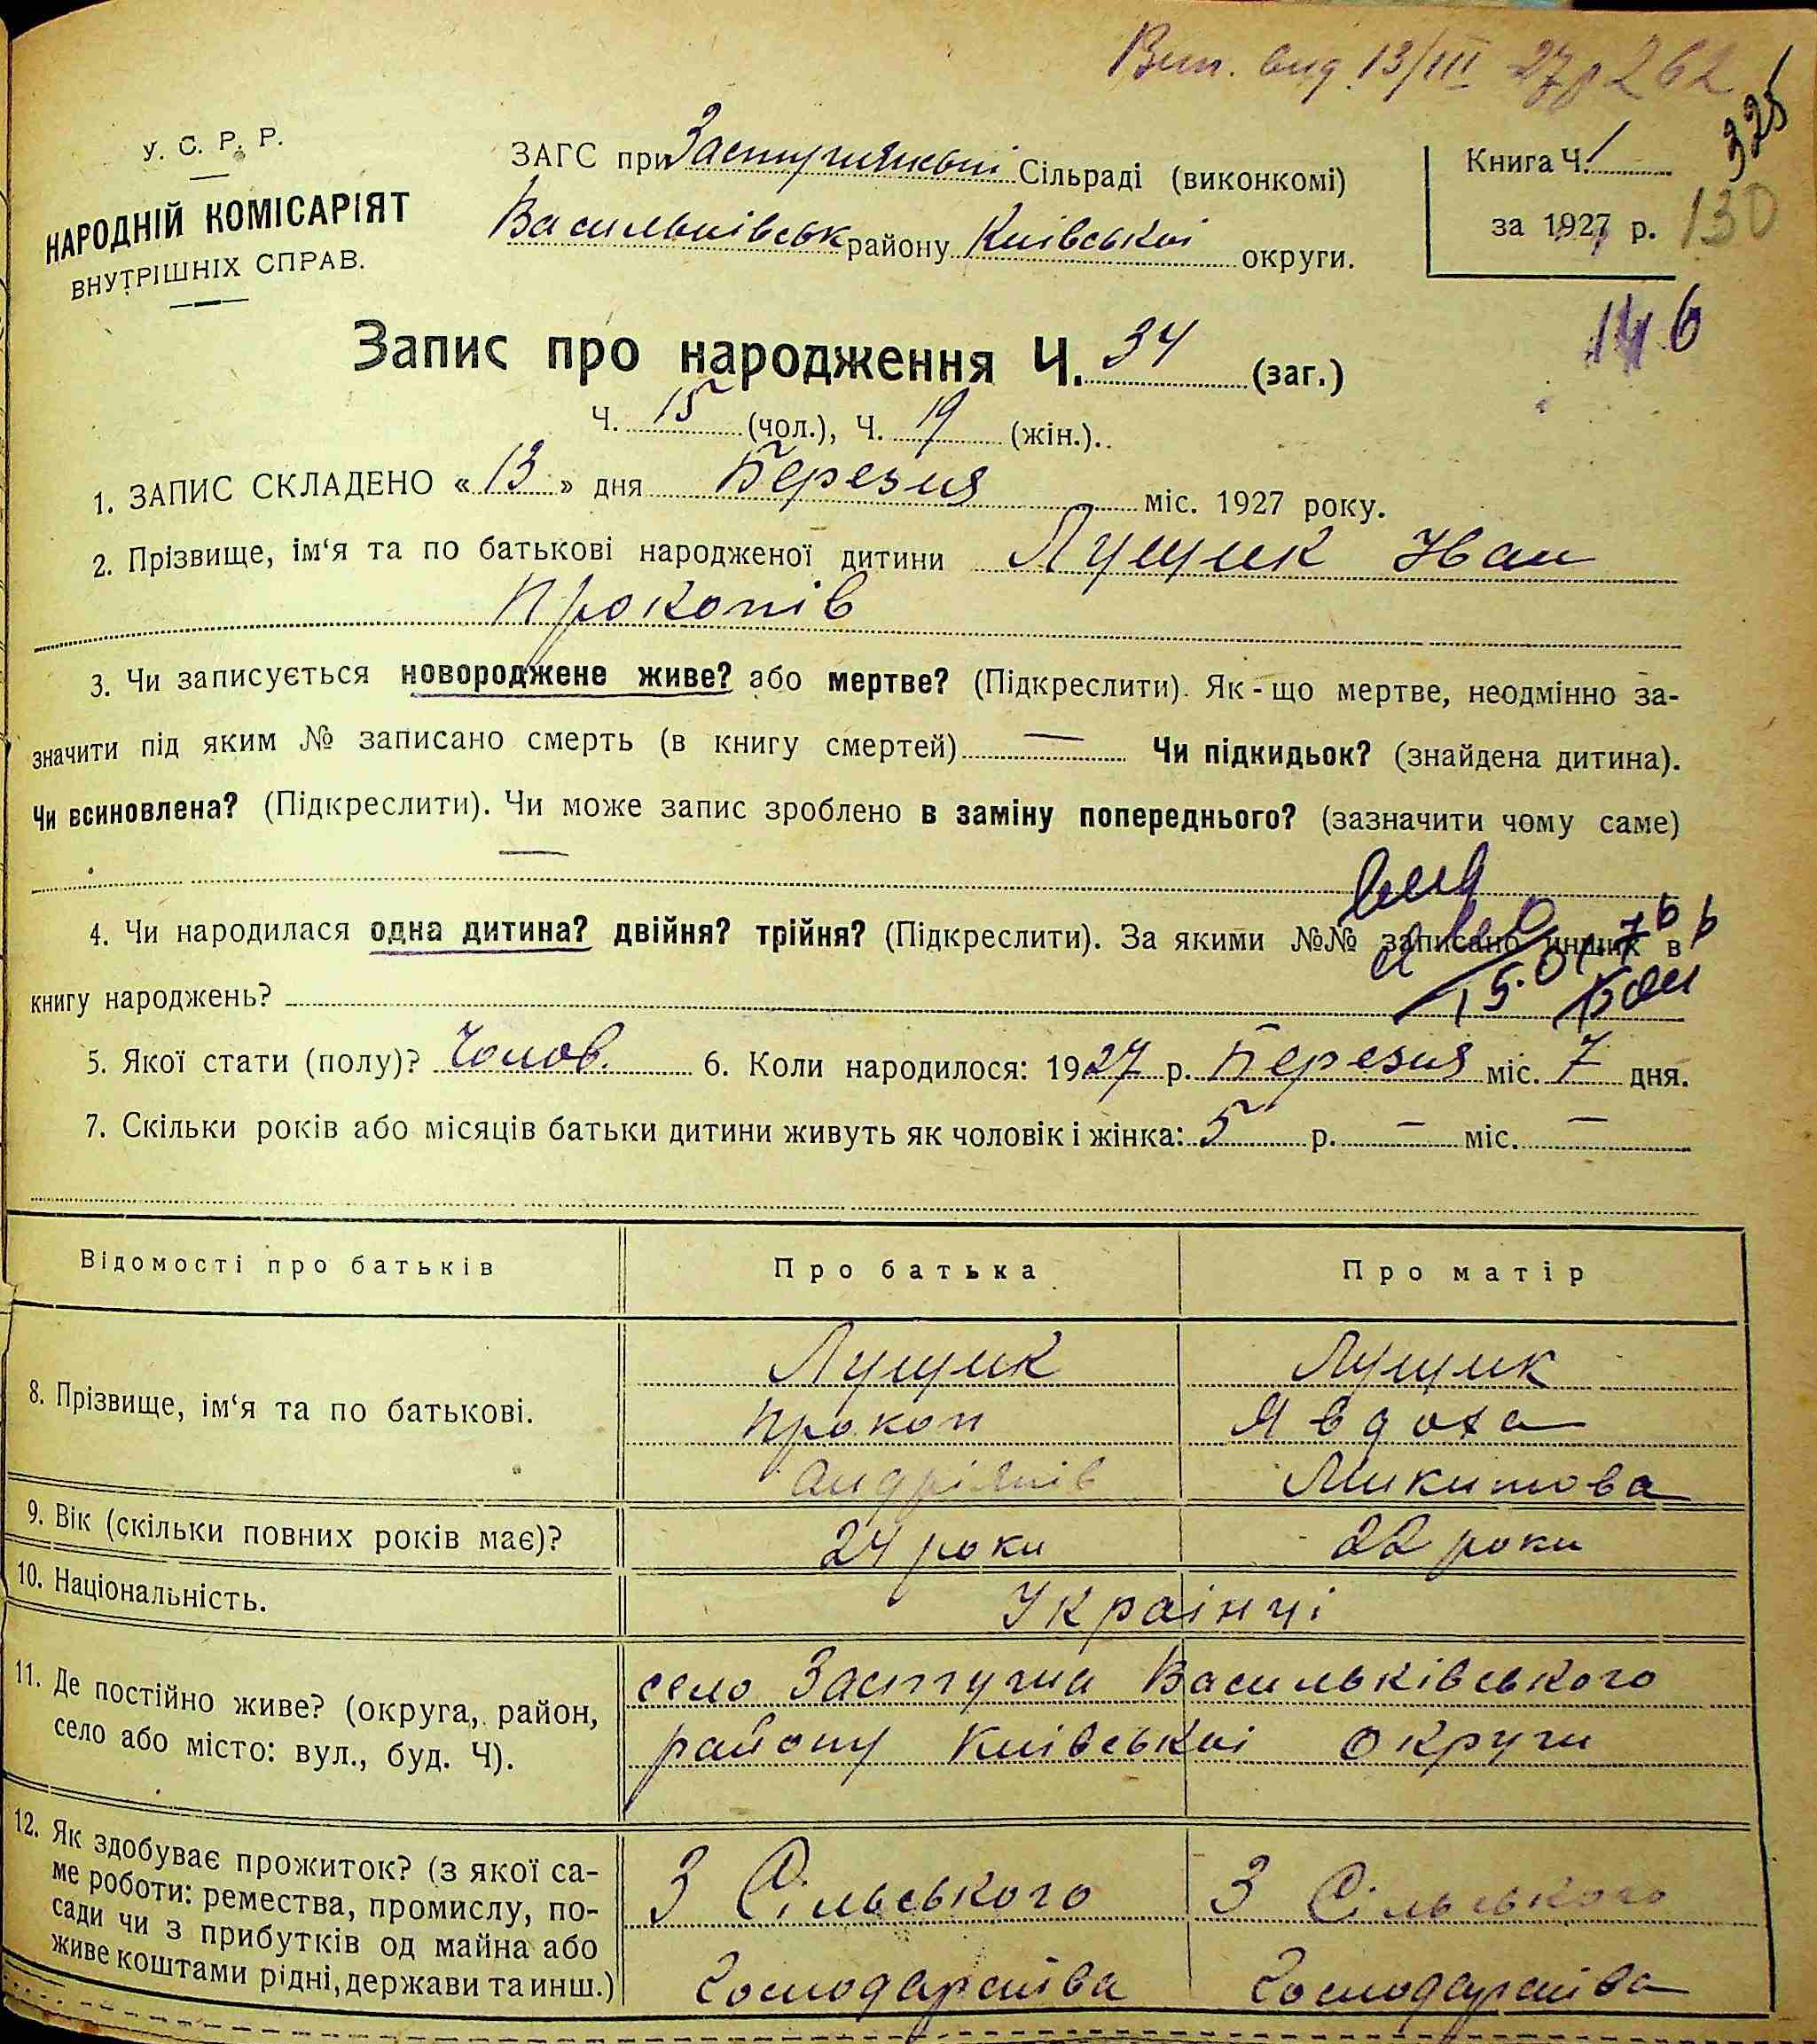 Вип. вид 13/III 27 р 262
325
У. С. Р. Р.
НАРОДНІЙ КОМІСАРІЯТ
ВНУТРІШНІХ СПРАВ.
ЗАГС при Застугнянскій Сільраді (виконкомі)
Васильківськ району Київськоі округи.
Книга Ч. 1
за 1927 р.
130
146
Запис про народження Ч. 34 (заг.)
Ч. 15 (чол.), Ч. 19 (жін.)..
1. ЗАПИС СКЛАДЕНО « 13 » дня Березня міс. 1927 року.
2. Прізвище, ім‘я та по батькові народженої дитини Лущик Иван
Прокопів
3. Чи записується новороджене живе? або мертве? (Підкреслити). Як-що мертве, неодмінно за-
значити під яким № записано смерть (в книгу смертей) — Чи підкидьок? (знайдена дитина).
Чи всиновлена? (Підкреслити). Чи може запис зроблено в заміну попереднього? (зазначити чому саме)
—
4. Чи народилася одна дитина? двійня? трійня? (Підкреслити). За якими №№ записано инших в
книгу народжень?
5. Якої стати (полу)? Чолов. 6. Коли народилося: 1927 р. Березня міс. 7 дня.
7. Скільки років або місяців батьки дитини живуть як чоловік і жінка: 5 р. — міс. —
Відомості про батьків Про батька Про матір
8. Прізвище, ім‘я та по батькові.
Лущик Лущик
Прокоп Явдоха
Андріянів Микитова
9. Вік (скільки повних років має)? 24 роки 22 роки
10. Національність. Украінці
11. Де постійно живе? (округа, район,
село або місто: вул., буд. Ч).
село Застугна Васильківського
району Киівськоі округи
12. Як здобуває прожиток? (з якої са-
ме роботи: ремества, промислу, по-
сади чи з прибутків од майна або
живе коштами рідні, держави та инш.)
З Сільського З Сільського
Господарства Господарства